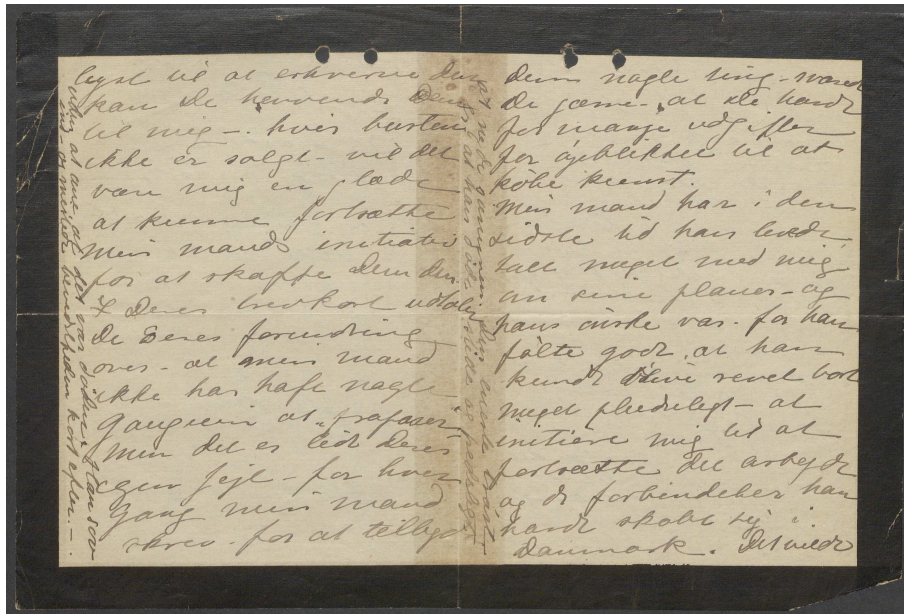 lyst til at erhverve den
kan De henvende Dem
til mig - hvis busten
ikke er solgt - vil det
være mig en glæde
at kunne fortsætte
min mands initiativ
for at skaffe Dem den
Deres brevkort udtaler
De Deres forundring
over - at min mand
ikke har haft nogle
Gauguin at
Men det er lidt Deres
egen fejl - for hver
Gang min mand
skrev - for at tilbyde
Dem nogle ting - svarede
De gærne - at De havde
for mange udgifter
for øjeblikket til at
købe kunst.
Min mand har i den
sidste tid han levede
talt meget med mig
om sine planer - og
hans ønske var - for han
følte godt, at han
kunde blive revet bort
meget pludseligt - at
initiere mig til at
fortsætte det arbejde
og de forbindelser han
havde skabt sig i
Danmark. Det vilde
uden at ane, at det var døden. Han sov
ind - og mistede bevidstheden kort efter. -